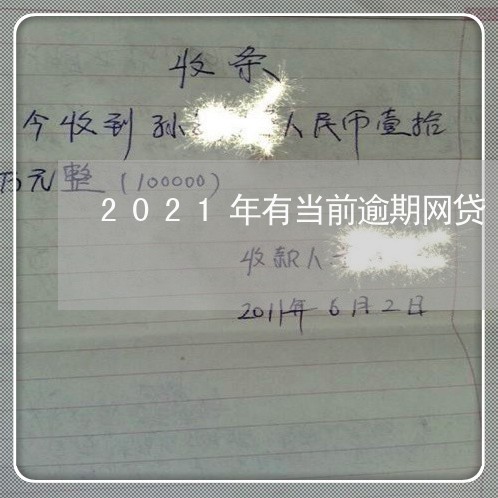 收条
今收到孙 人民币壹拾
万元整(100000)
2021年有当前逾期网贷
收款人
2011年6月2日